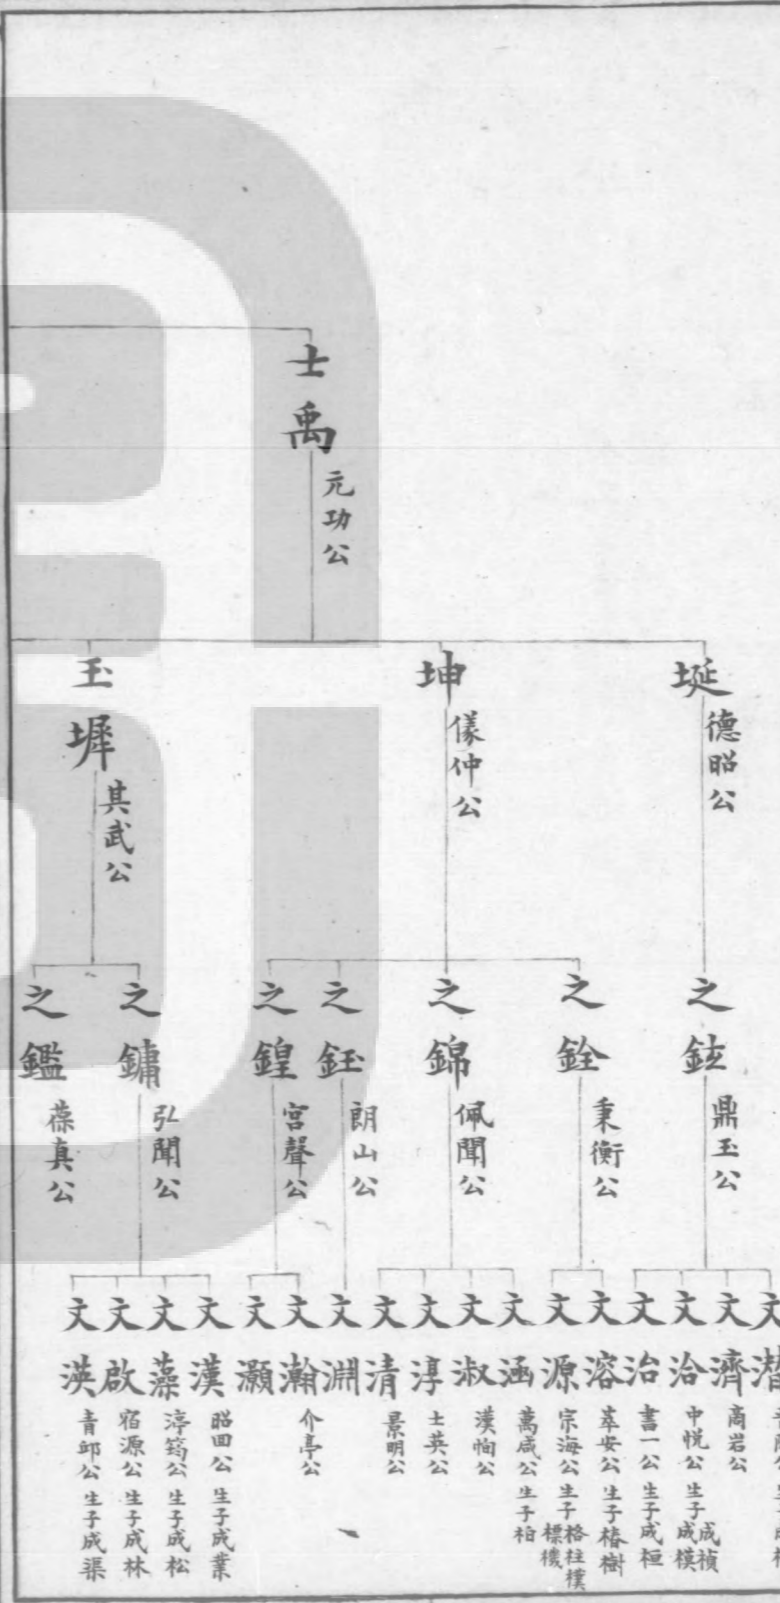 士禹
元功公
埏
德昭公
坤
儀仲公
玉墀
其武公
之鉉
鼎玉公
之銓
秉衡公
之錦
佩聞公
之鈺
朗山公
之鍠
宮聲公
之鏞
弘聞公
之鑑
葆真公
文濟
商岩公
文洽
中悅公 生子成禎成模
文治
書一公 生子成桓
文溶
萃安公 生子椿樹
文源
宗海公 生子格柱樸標機
文涵
萬咸公 生子柏
文淑
漢恂公
文淳
士英公
文清
景明公
文淵
文瀚
介亭公
文灝
文漢
昭回公 生子成業
文藻
渟篶公 生子成松
文啟
宿源公 生子成林
文渶
青邱公 生子成渠